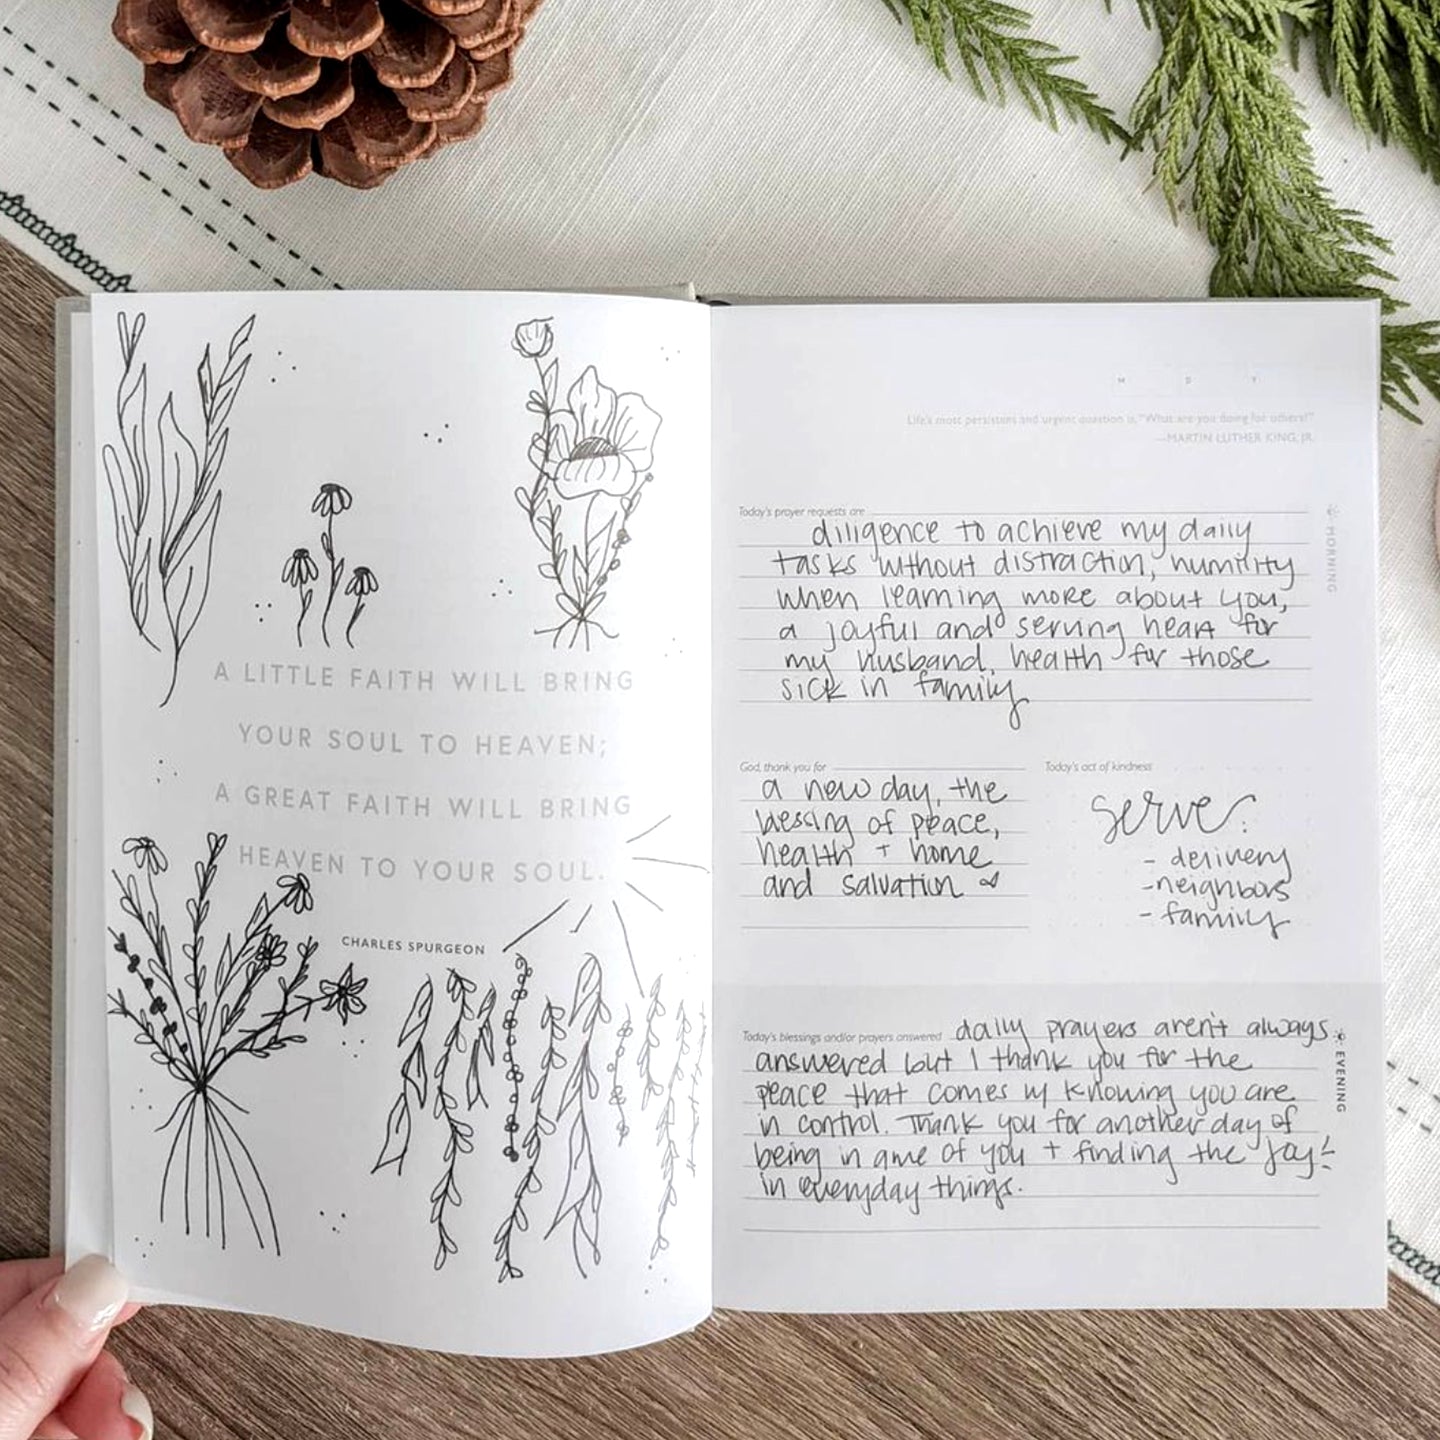 A LITTLE FAITH WILL BRING
YOUR SOUL TO HEAVEN;
A GREAT FAITH WILL BRING
HEAVEN TO YOUR SOUL.
CHARLES SPURGEON
M D Y
Life's most persistent and urgent question is, "What are you doing for others?"
—MARTIN LUTHER KING, JR.
MORNING
Today's prayer requests are
diligence to achieve my daily
tasks without distraction, humility
when learning more about you,
a joyful and serving heart for
my husband, health for those
sick in family
God, thank you for
a new day, the
blessing of peace,
health + home
and salvation
Today's act of kindness
serve:
- delivery
- neighbors
- family
EVENING
Today's blessings and/or prayers answered daily prayers aren't always
answered but I thank you for the
peace that comes w/ knowing you are
in control. Thank you for another day of
being in awe of you + finding the joy
in everyday things.